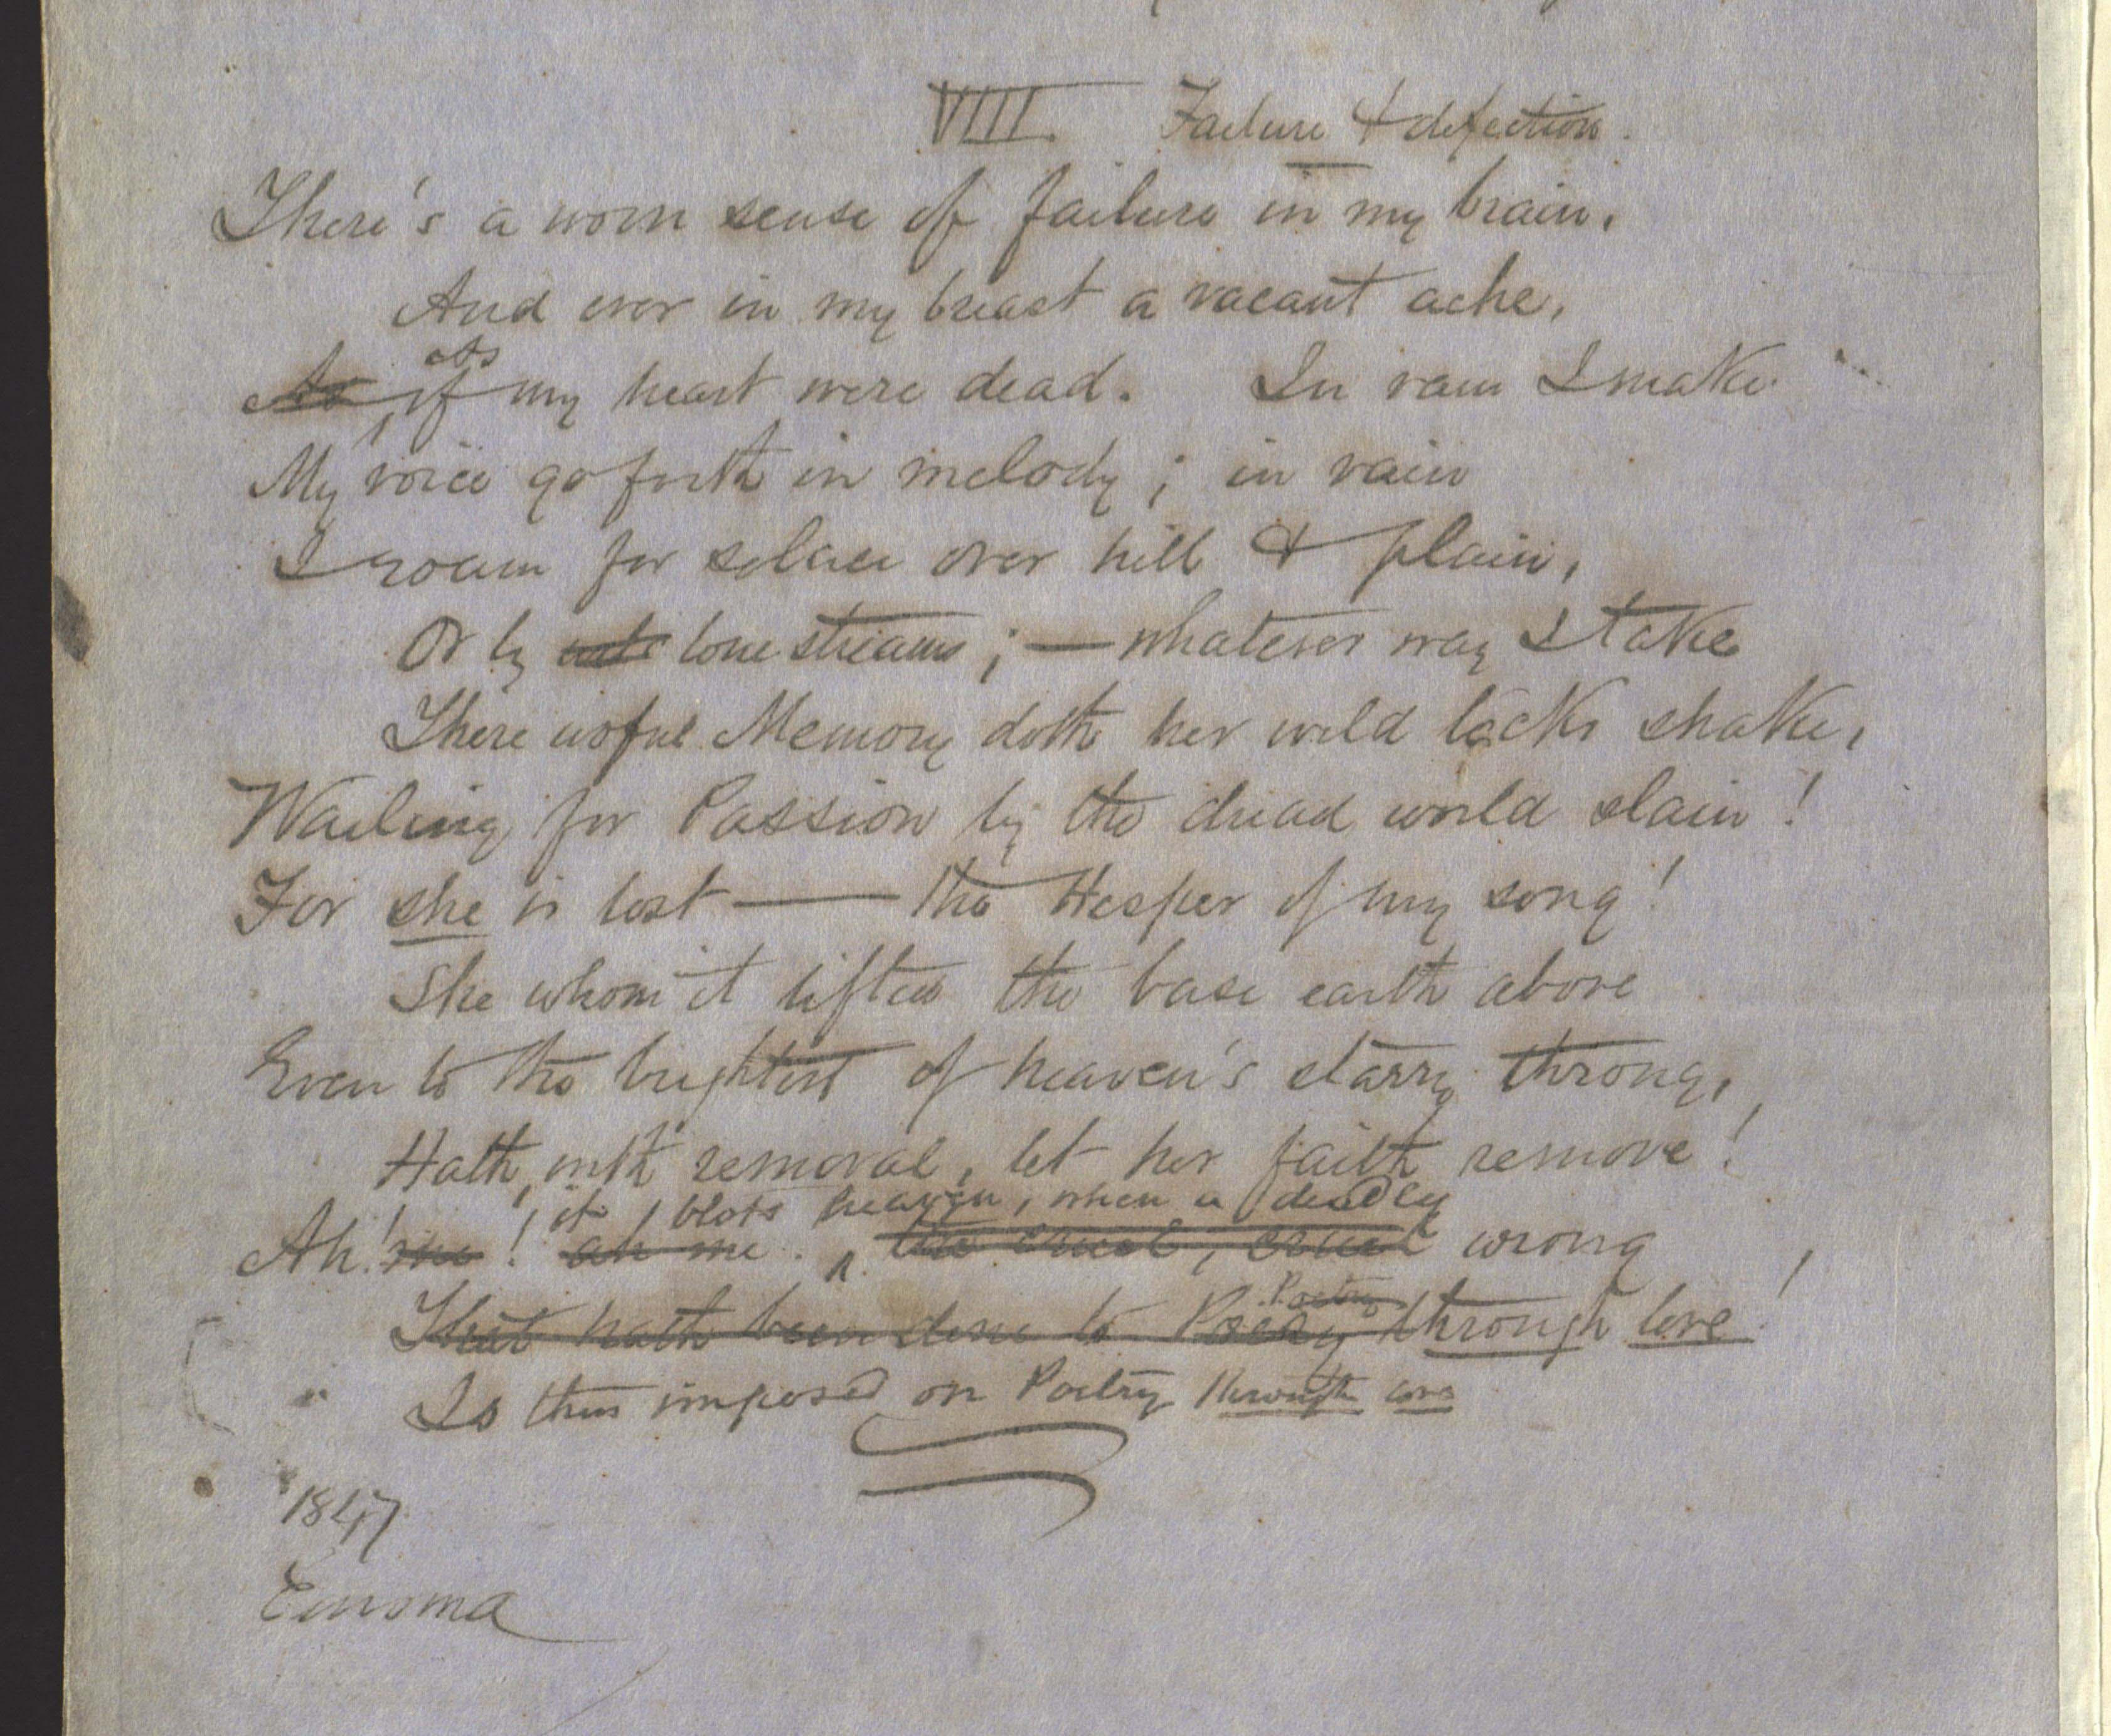 VIII. Failure & defection.
There's a worn sense of failure in my brain,
And ever in my breast a vacant ache,
as
As if my heart were dead. In vain I make
My voice go forth in melody; in vain
I roam for solace over hill & plain,
Or by lone streams; — whatever way I take
There woful Memory doth her wild locks shake,
Wailing for Passion by the dread world slain!
For she is lost — the Hesper of my song!
She whom it lifted the base earth above
Even to the brightest of heaven's starry throng,
Hath, with removal, let her faith remove!
it blots heaven, when a deadly
Ah! me! ah me. the cruel, cruel wrong
Poetry
That hath been done to Poesy through love!
Is thus imposed on Poetry through love
1847